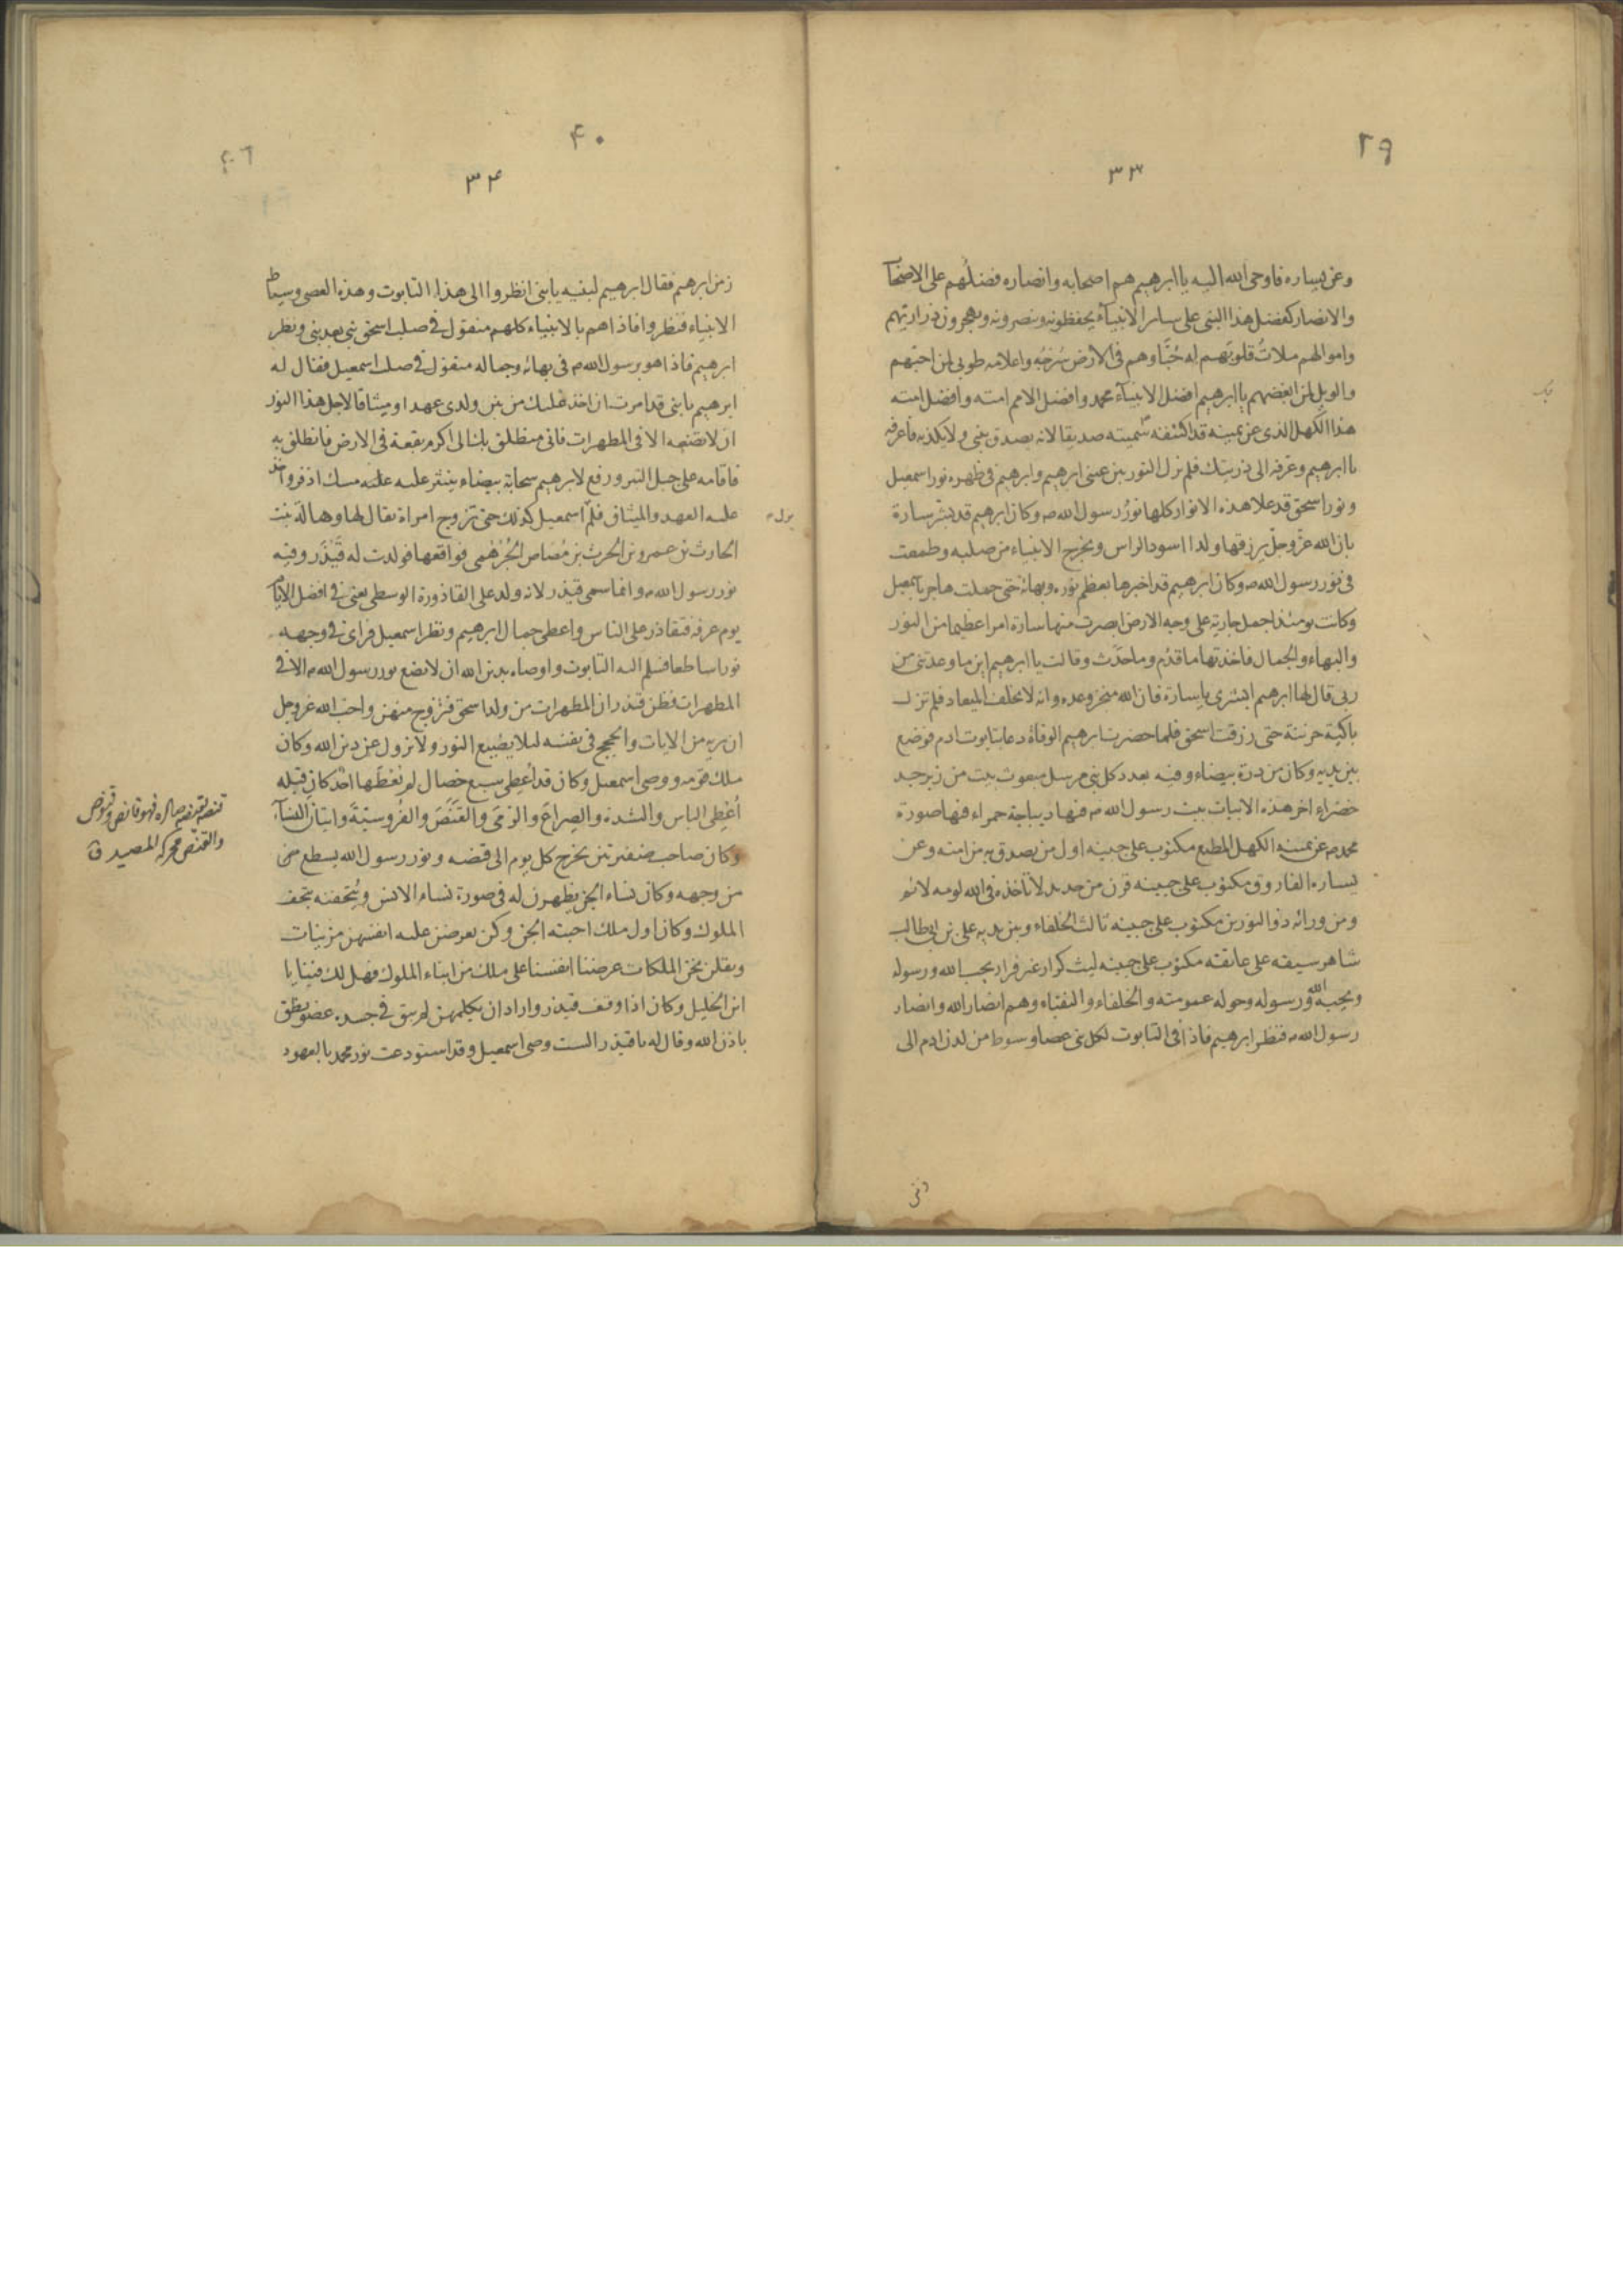 ٢٩
٣٣
وعن يساره فاوحى الله اليه يا ابرهيم هم اصحابه وانصاره فضلهم على الاصحاب
والانصار كفضل هذا النبى على سائر الانبيآء يحفظونه وينصرونه ويهجرون ذراريهم
واموالهم ملاتُ قلوبهم له حُبًّا وهم فى الارض سُرُجُه واعلامه طوبى لمن احبهم
والويل لمن ابغضهم يا ابرهيم افضل الانبيآء محمد وافضل الامم امته وافضل امته
هذا الكهل الذى عن يمينه قد اكتنفه سميته صديقا لانه يصدق بنبى ولا يكذبه فاعرفه
يا ابرهيم وعرفه الى ذريتك فلم نزل النور بين عينى ابرهيم وابرهيم فى ظهره نور اسمعيل
ونور اسحق قد علا هذه الانوار كلها نورُ رسول الله ص وكان ابرهيم قد بشر سارة
بان الله عزّ وجلّ يرزقها ولدا اسود الراس ويخرج الانبياء من صلبه وطمعت
فى نور رسول الله ص وكان ابرهيم قد اخبرها بعظم نوره وبهائه حتى حملت هاجر باسمعيل
وكانت يومئذ اجمل جارية على وجه الارض ابصرت منها سارة امرا عظيما من النور
والبهاء والجمال فاخذتها ما قدُم وما حدَث وقالت يا ابرهيم اين ما وعدتنى من
ربى قال لها ابرهيم ابشرى يا سارة فان الله منجز وعده وانه لا يخلف الميعاد فلم تزل
باكية حزينة حتى رزقت اسحق فلما حضرت ابرهيم الوفاة دعا بتابوت ادم فوضع
بين يديه وكان من درة بيضاء وفيه بعدد كل نبى مرسل مبعوث بيت من زبرجد
خضراء اخر هذه الابيات بيت رسول الله ص فيها ديباجة حمراء فيها صورة
محمد ص عن يمينه الكهل المطيع مكتوب على جبينه اول من يصدق به من امته وعن
يساره الفاروق مكتوب على جبينه قرن من حديد لا تاخذه فى الله لومه لائم
ومن ورائه ذو النورين مكتوب على جبينه ثالث الخلفاء وبين يديه على بن ابى طالب
شاهر سيفه على عاتقه مكتوب على جبينه ليث كرار غير فرار يحب الله ورسوله
ويحبه الله ورسوله وحوله عمومته والخلفاء والنقباء وهم انصار الله وانصار
رسول الله ص فنظر ابرهيم فاذا فى التابوت لكل نبى عصا وسوط من لدن ادم الى
٤٠
٣٤
زمن ابرهيم فقال ابرهيم لبنيه يا بنى انظروا الى هذا التابوت وهذه العصى وسياط
الانبياء فنظروا فاذاهم بالانبياء كلهم منقول فى صلب اسحق نبى بعد نبى ونظر
ابرهيم فاذا هو برسول الله ص فى بهائه وجماله منقول فى صلب اسمعيل فقال له
ابرهيم يا بنى قد امرت ان اخذ عليك من بين ولدى عهدا وميثاقا لاجل هذا النور
ان لا تضعه الا فى المطهرات فانى منطلق بك الى اكرم بقعة فى الارض فانطلق به
فاقامه على جبل الثبر ورفع لابرهيم سحابة بيضاء ينتثر عليه مسك اذفر واخذ
عليه العهد والميثاق فلم اسمعيل كذلك حتى تزوج امراة يقال لها وهالَة بنت
يزل
الحارث بن عمرو بن الحرث بن مُضاض الجُرْهُمى فواقعها فولدت له قَيْذَر وفيه
نور رسول الله ص وانما سمى قيذر لانه ولد على القاذورة الوسطى يعنى فى افضل الايام
يوم عرفه فتقاذر على الناس واعطى جمال ابرهيم ونظر اسمعيل فراى فى وجهه
نورا ساطعا فسلم اليه التابوت واوصاه بدين الله ان لا يضع نور رسول الله ص الا فى
المطهرات فظن قيذر ان المطهرات من ولد اسحق فتزوج منهن واحب الله عزوجل
ان يريه من الايات والحجج فى نفسه لئلا يضيع النور ولا يزول عن دين الله وكان
ملك قومه ووصى اسمعيل وكان قد اُعطى سبع خصال لم يُعْطَها احد كان قبله
اُعْطِى الباس والشدة والصِراعَ والرَمىَ والقَنَصَ والفُروسيّةَ واتيان النسآء
وكان صاحب ضفيرتين يخرج كل يوم الى قنصه ونور رسول الله يسطع من
من وجهه وكان نساء الجن يظهرن له فى صورة نساء الانس ويُتحفنه بتحف
الملوك وكان اول ملك احبته الجن وكن يعرضن عليه انفسهن مزينات
ويقلن نحن الملكات عرضنا انفسنا على ملك من ابناء الملوك فهل لك فينا يا
ابن الخليل وكان اذا وقف قيذر واراد ان يكلمهن لم يبق فى جسده عضو ينطق
باذن الله وقال له يا قيذر الست وصى اسمعيل وقد استودعت نور محمد بالعهود
والقنص محركه المصيد ق